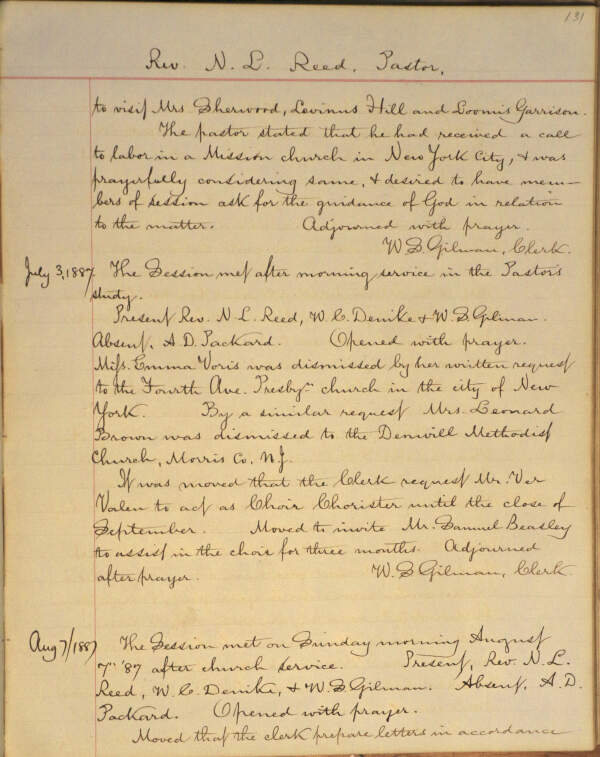 131
Rev. N. L. Reed, Pastor,
to visit Mrs Sherwood, Levinus Hill and Loomis Garrison.
The pastor stated that he had received a call
to labor in a Mission church in New York City, & was
prayerfully considering same, & desired to have mem-
bers of session ask for the guidance of God in relation
to the matter. Adjourned with prayer.
W. S. Gilman, Clerk.
July 3, 1887 The Session met after morning service in the Pastor's
study.
Present Rev. N. L. Reed, W. C. Denike & W. S. Gilman.
Absent, A. D. Packard. Opened with prayer.
Miss. Emma Voris was dismissed by her written request
to the Fourth Ave. Presbyn church in the city of New
York. By a similar request Mrs. Leonard
Brown was dismissed to the Denvill Methodist
Church, Morris Co. N.J.
It was moved that the Clerk request Mr. Ver
Valen to act as Choir Chorister until the close of
September. Moved to invite Mr. Samuel Beasley
to assist in the choir for three months. Adjourned
after prayer. W. S. Gilman, Clerk.
Aug 7/1887 The Session met on Sunday morning August
7th '87 after church service. Present, Rev. N. L.
Reed, W. C. Denike, & W. S. Gilman. Absent, A. D.
Packard. Opened with prayer.
Moved that the clerk prepare letters in accordance